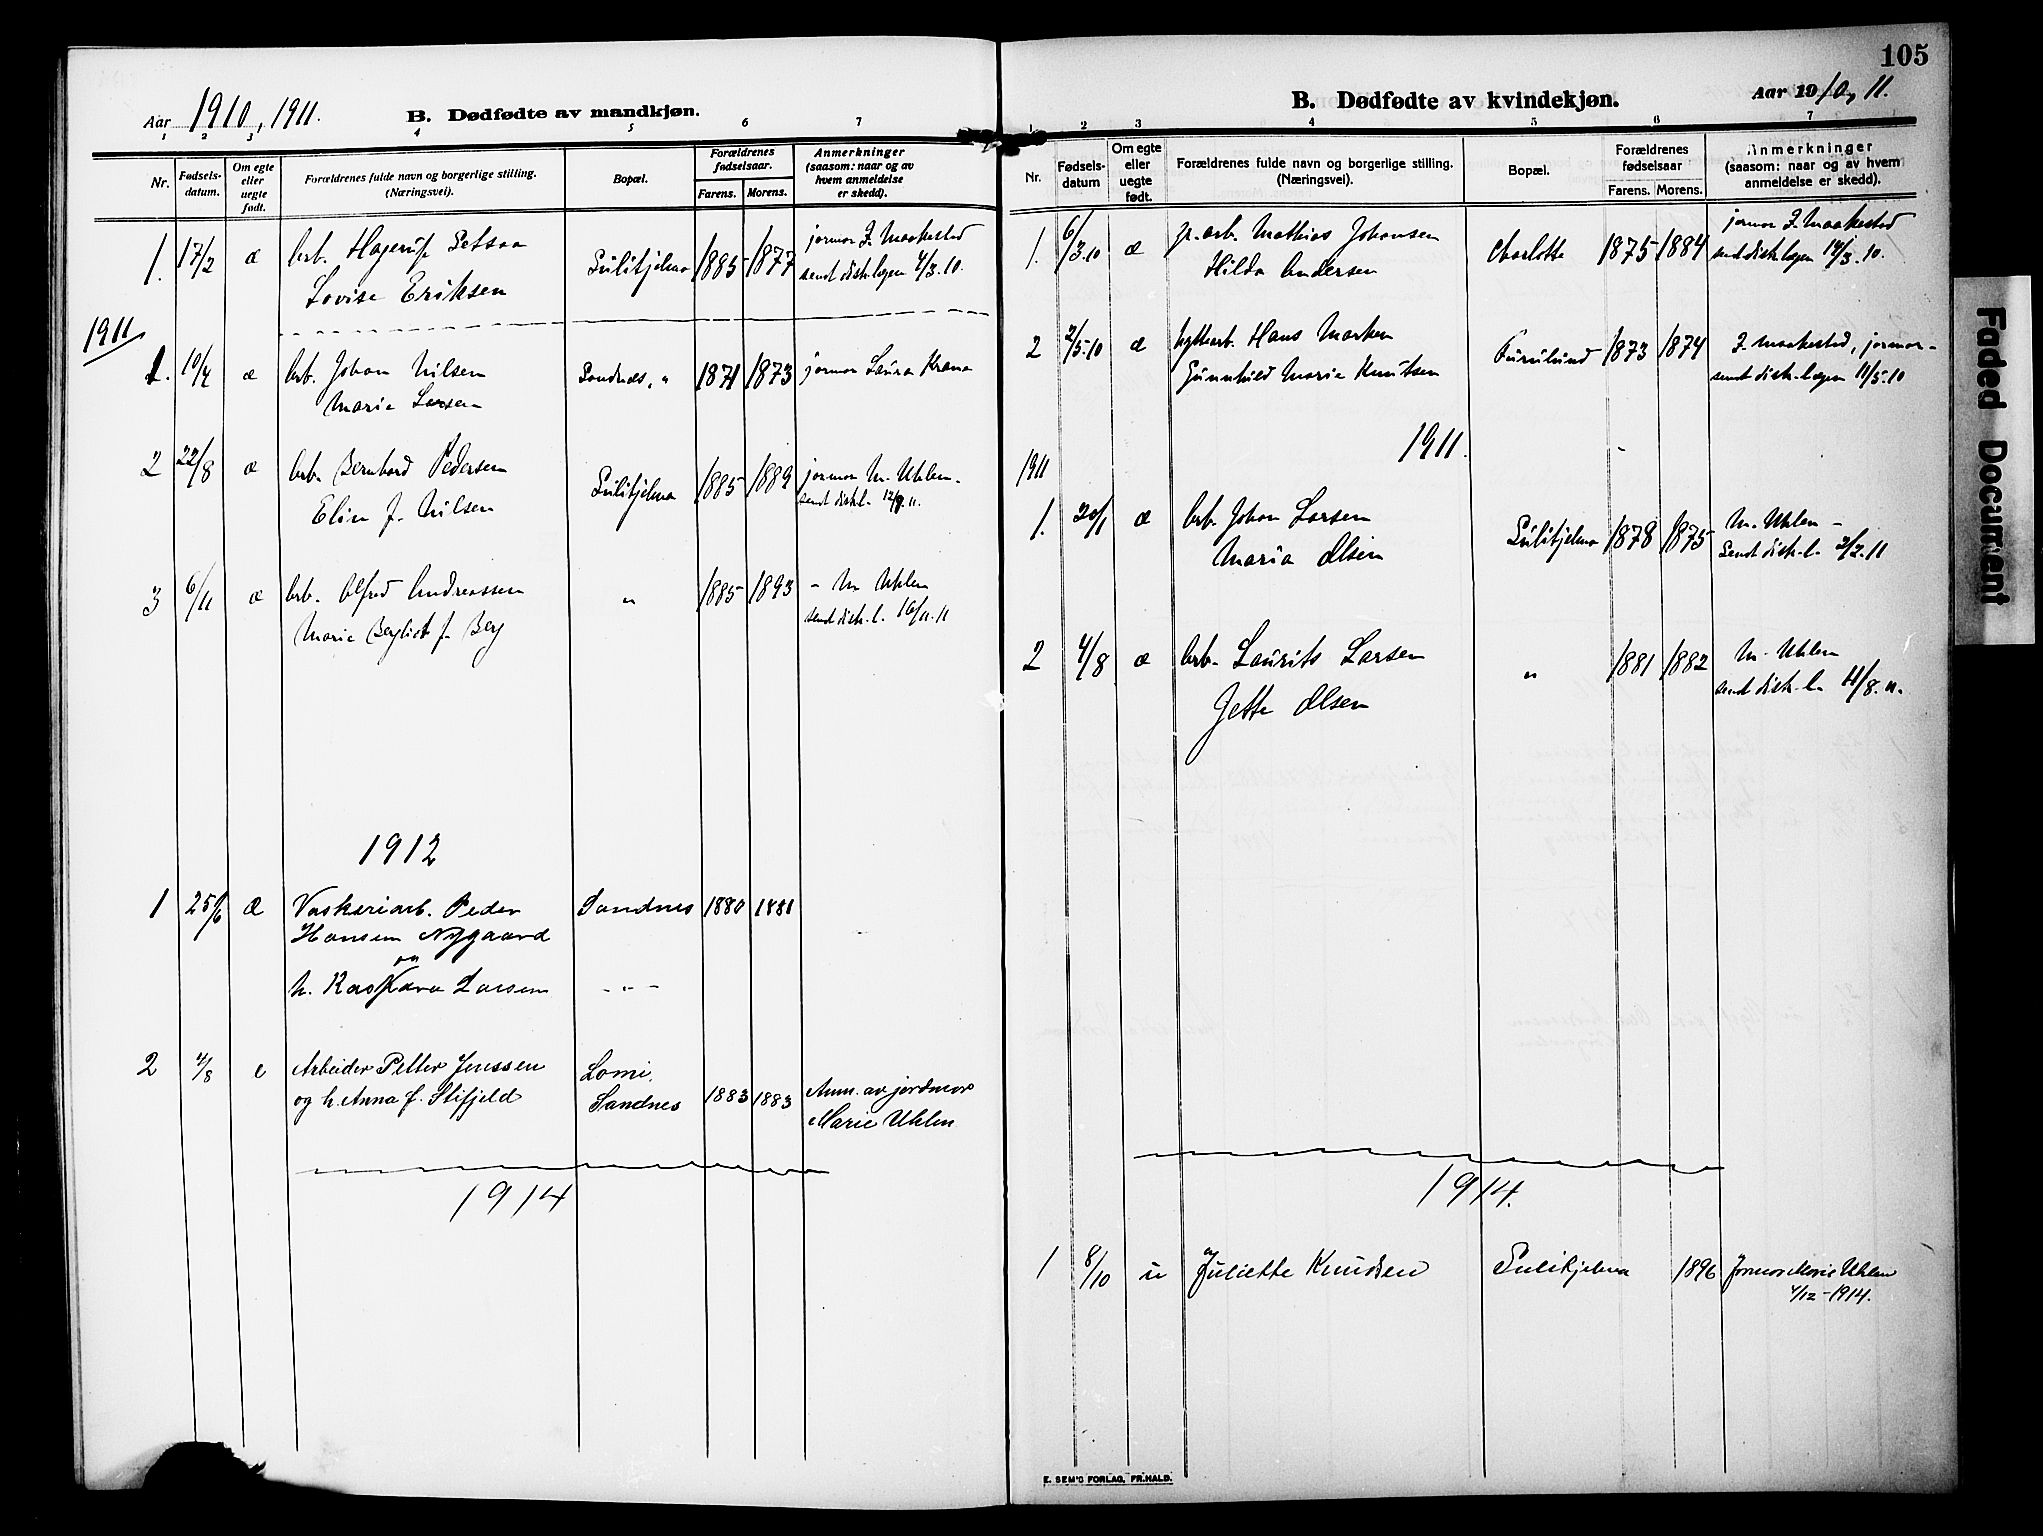 105
Aar 1910, 1911.
B. Dødfødte av mandkjøn.
1 2 3 4 5 6 7
Nr.
Fødsels-
datum.
Om egte
eller
uegte
født.
Forældrenes fulde navn og borgerlige stilling.
(Næringsvei).
Bopæl.
Forældrenes
fødselsaar.
Farens. Morens.
Anmerkninger
(saasom: naar og av
hvem anmeldelse
er skedd).
1. 17/2 æ Arb. Hagerup Petsaa
Lovise Eriksen
Sulitjelma 1885 1877
jormor J. Maakestad
sendt distr.lægen 4/3.10.
1911
1. 10/4 æ Arb. Johan Nilsen
Marie Larsen
Sandnes, " 1871 1873 jormor Laura Krane
2 22/8 æ Arb. Bernhard Pedersen
Elin f. Nilsen
Sulitjelma 1885 1889
jormor M. Uhlen.
sendt distr.l. 12/9.11.
3 6/11 æ Arb. Alfred Andreassen
Marie Bergliot f. Berg
" 1885 1893
- M. Uhlen
sendt distr.l. 16/11.11
1912
1 25/6 Æ Vaskeriarb. Peder
Hansen Nygaard
og
h. Kaspara Larsen
Sandnes 1880 1881
- " -
2 4/8 e Arbeider Petter Jenssen
og h. Anna f. Stifjeld
Lomi,
Sandnes 1883 1883
Anm. av jordmor
Marie Uhlen
1914
B. Dødfødte av kvindekjøn.
Aar 1910, 11.
1 2 3 4 5 6 7
Nr.
Fødsels-
datum
Om egte
eller
uegte
født.
Forældrenes fulde navn og borgerlige stilling.
(Næringsvei).
Bopæl.
Forældrenes
fødselsaar
Farens. Morens.
Anmerkninger
(saasom: naar og av hvem
anmeldelse er skedd).
1. 6/3.10 æ gr.arb. Mathias Johansen
Hilda Andersen
Charlotte 1875 1884
jormor J. Maakestad
sendt distr.lægen 14/3.10.
2 2/5.10 æ hyttearb. Hans Morten
Gunnhild Marie Knutsen
Furulund 1873 1874
J. Maakestad, jormor-
sendt distr.lægen 11/5.10
1911.
1911
1. 20/1 æ Arb. Johan Larsen
Maria Olsen
Sulitjelma 1878 1875
M. Uhlen -
Sendt distr.l. 2/2.11
2 4/8 æ Arb. Laurits Larsen
Jette Olsen
" 1881 1882
M. Uhlen
sendt distr.l. 11/8.11.
1914.
1 8/10 u Juliette Knudsen Sulitjelma 1896 Jormor Marie Uhlen
4/12-1914.
E. SEM'S FORLAG, FR.HALD.
Faded Document